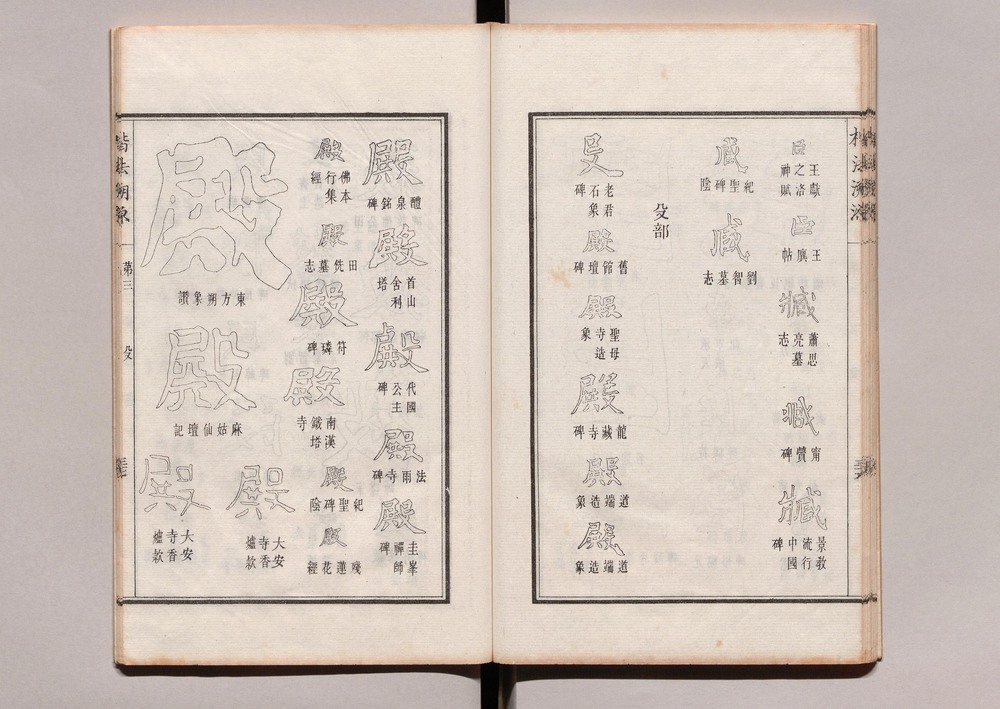 楷法溯源
臣
王獻之洛神賦
臣
王廙帖
臧
蕭思亮墓志
臧
甯贙碑
臧
景教流行中國碑
臧
紀聖碑陰
臧
劉智墓志
殳部
殳
老君石象碑
殿
舊館壇碑
殿
聖母寺造象
殿
龍藏寺碑
殿
道端造象
殿
道端造象
殿
醴泉銘碑
殿
首山舍利塔
殿
代國公主碑
殿
法雨寺碑
殿
圭峯禪師碑
殿
佛本行集經
殿
田侁墓志
殿
符璘碑
殿
南漢鐵塔寺
殿
紀聖碑陰
殿
殘蓮花經
殿
東方朔象讚
殿
麻姑仙壇記
殿
大安寺香爐款
殿
大安寺香爐款
楷法溯源
第三
殳